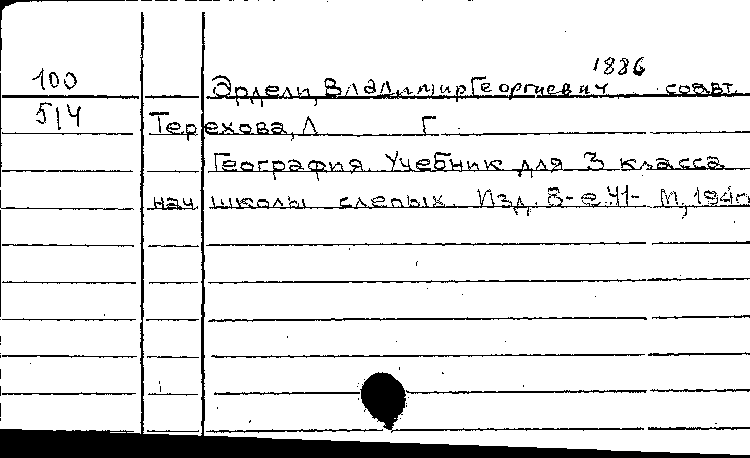 1886
100 Эрдели, Владимир Георгиевич соавт.
5/4 Терехова, Л Г
География. Учебник для 3 класса
нач школы слепых. Изд. 8-е Ч1- М, 1940